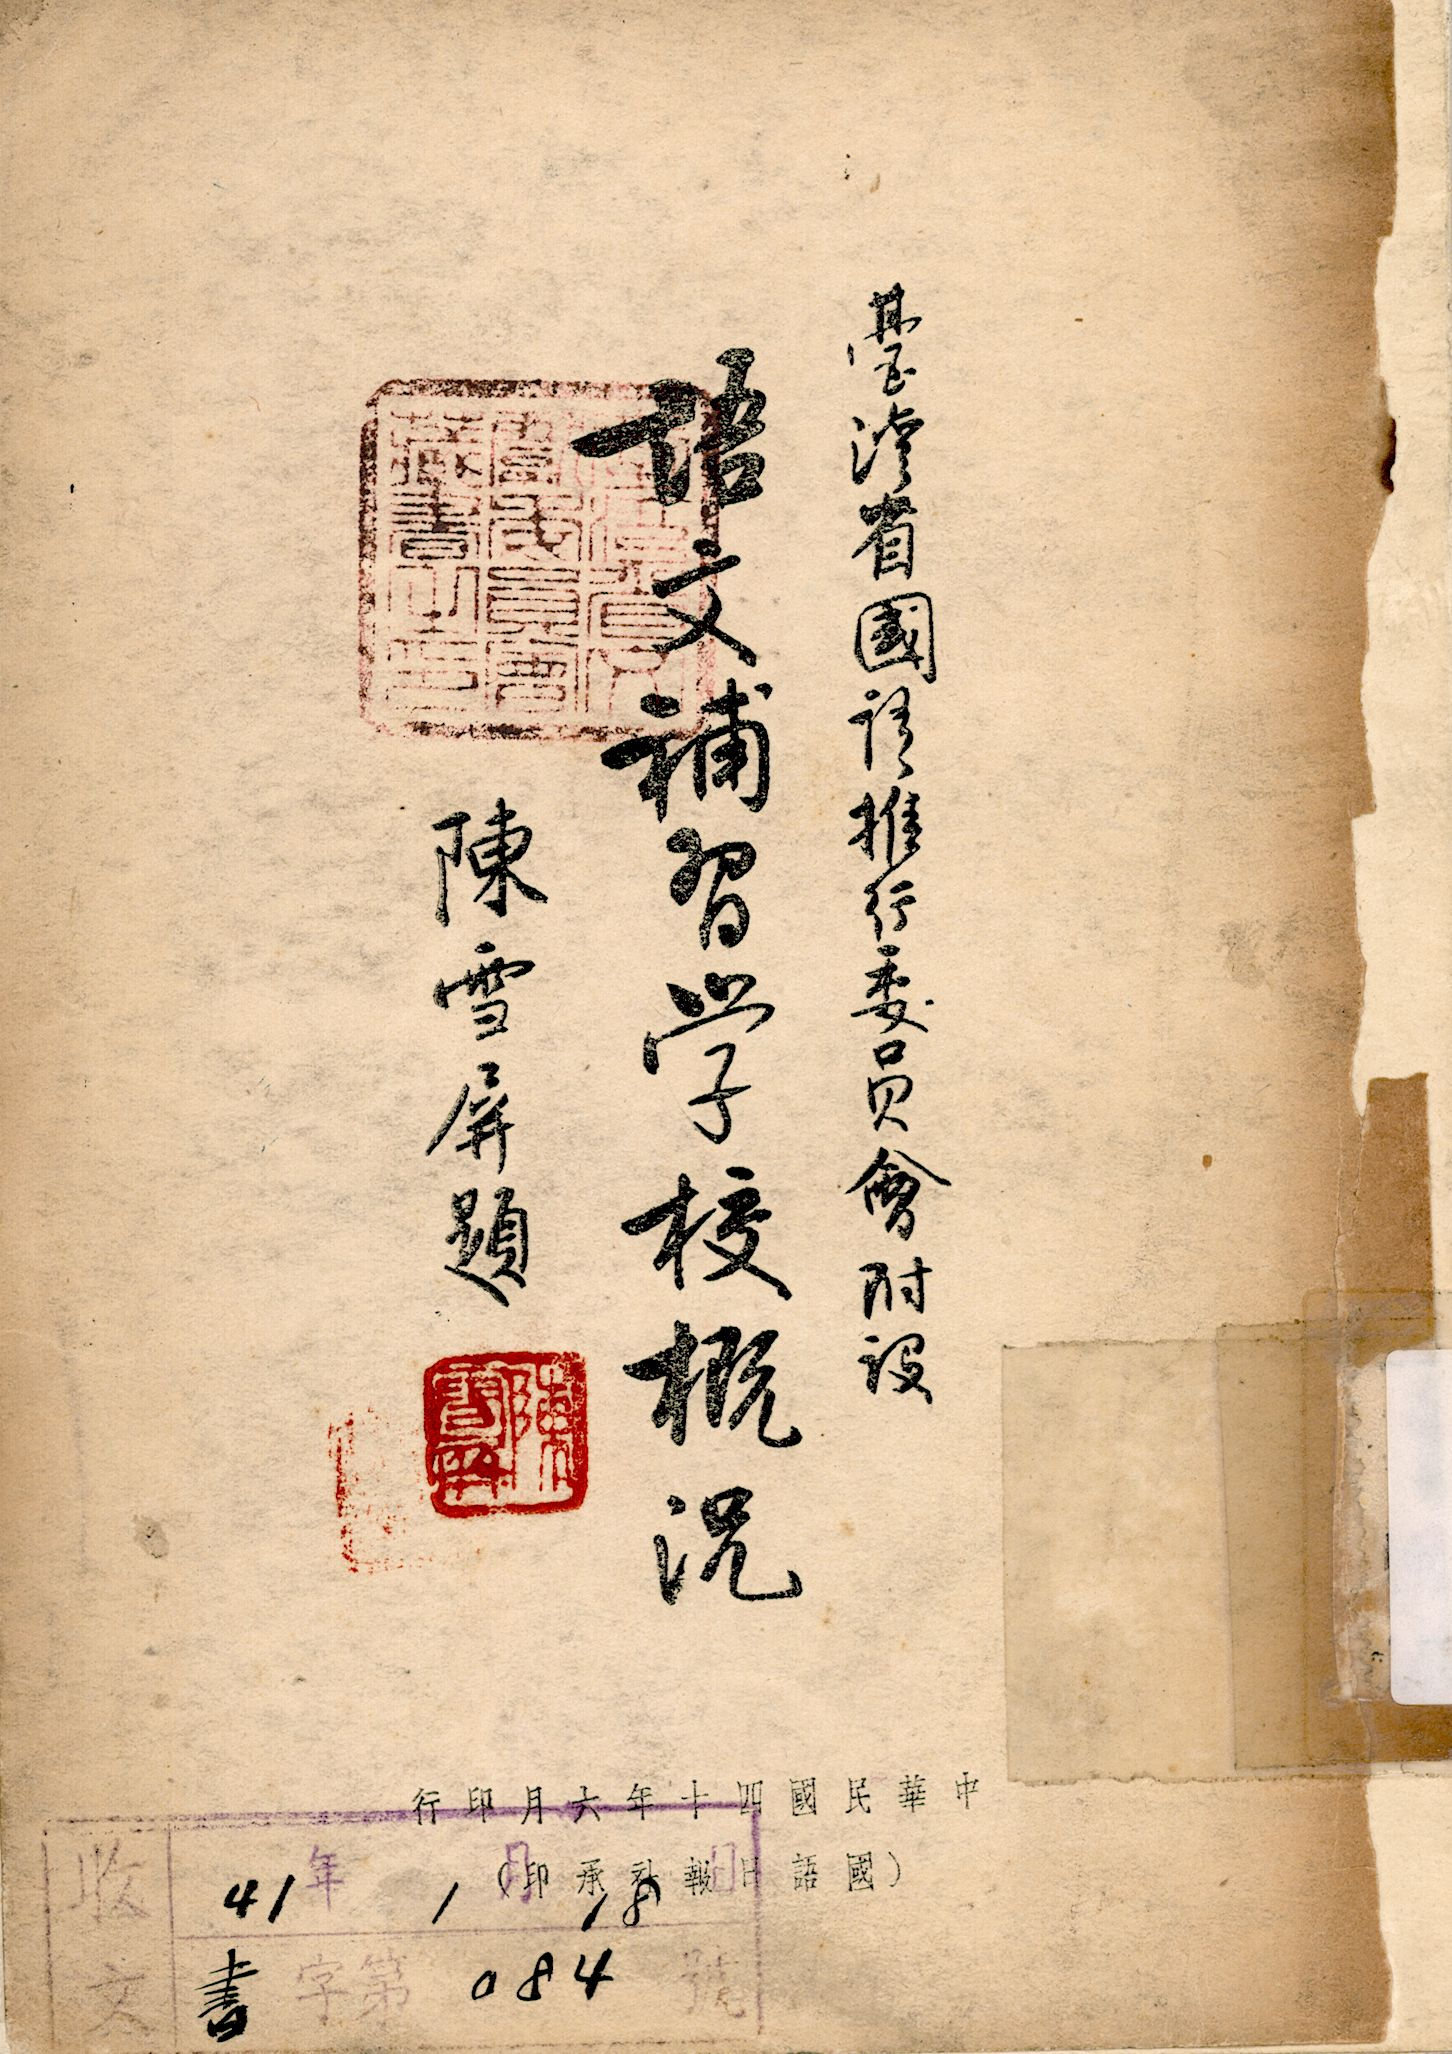 臺灣省國語推行委員會附設
語文補習学校概況
陳雪屏題
陳雪屏
藏書之章
中華民國四十年六月印行
(國語日報社承印)
收文
41年1月18日
書字第084號